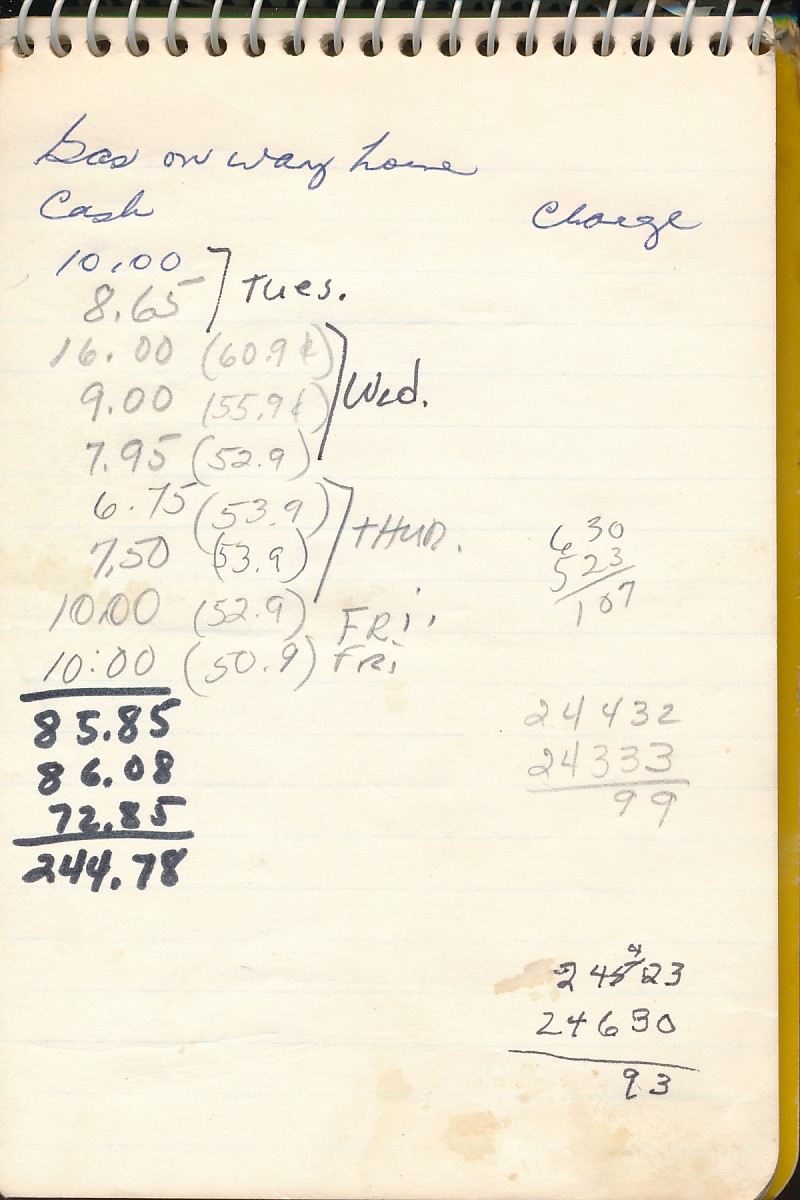 Gas on way home
Cash Charge
10.00
8.65 Tues.
16.00 (60.9¢)
9.00 (55.9¢) Wed.
7.95 (52.9)
6.75 (53.9)
7.50 (53.9) THUR.
10.00 (52.9) FRi.
10:00 (50.9) FRi
85.85
86.08
72.85
244.78
630
523
107
24432
24333
99
23
24630
93